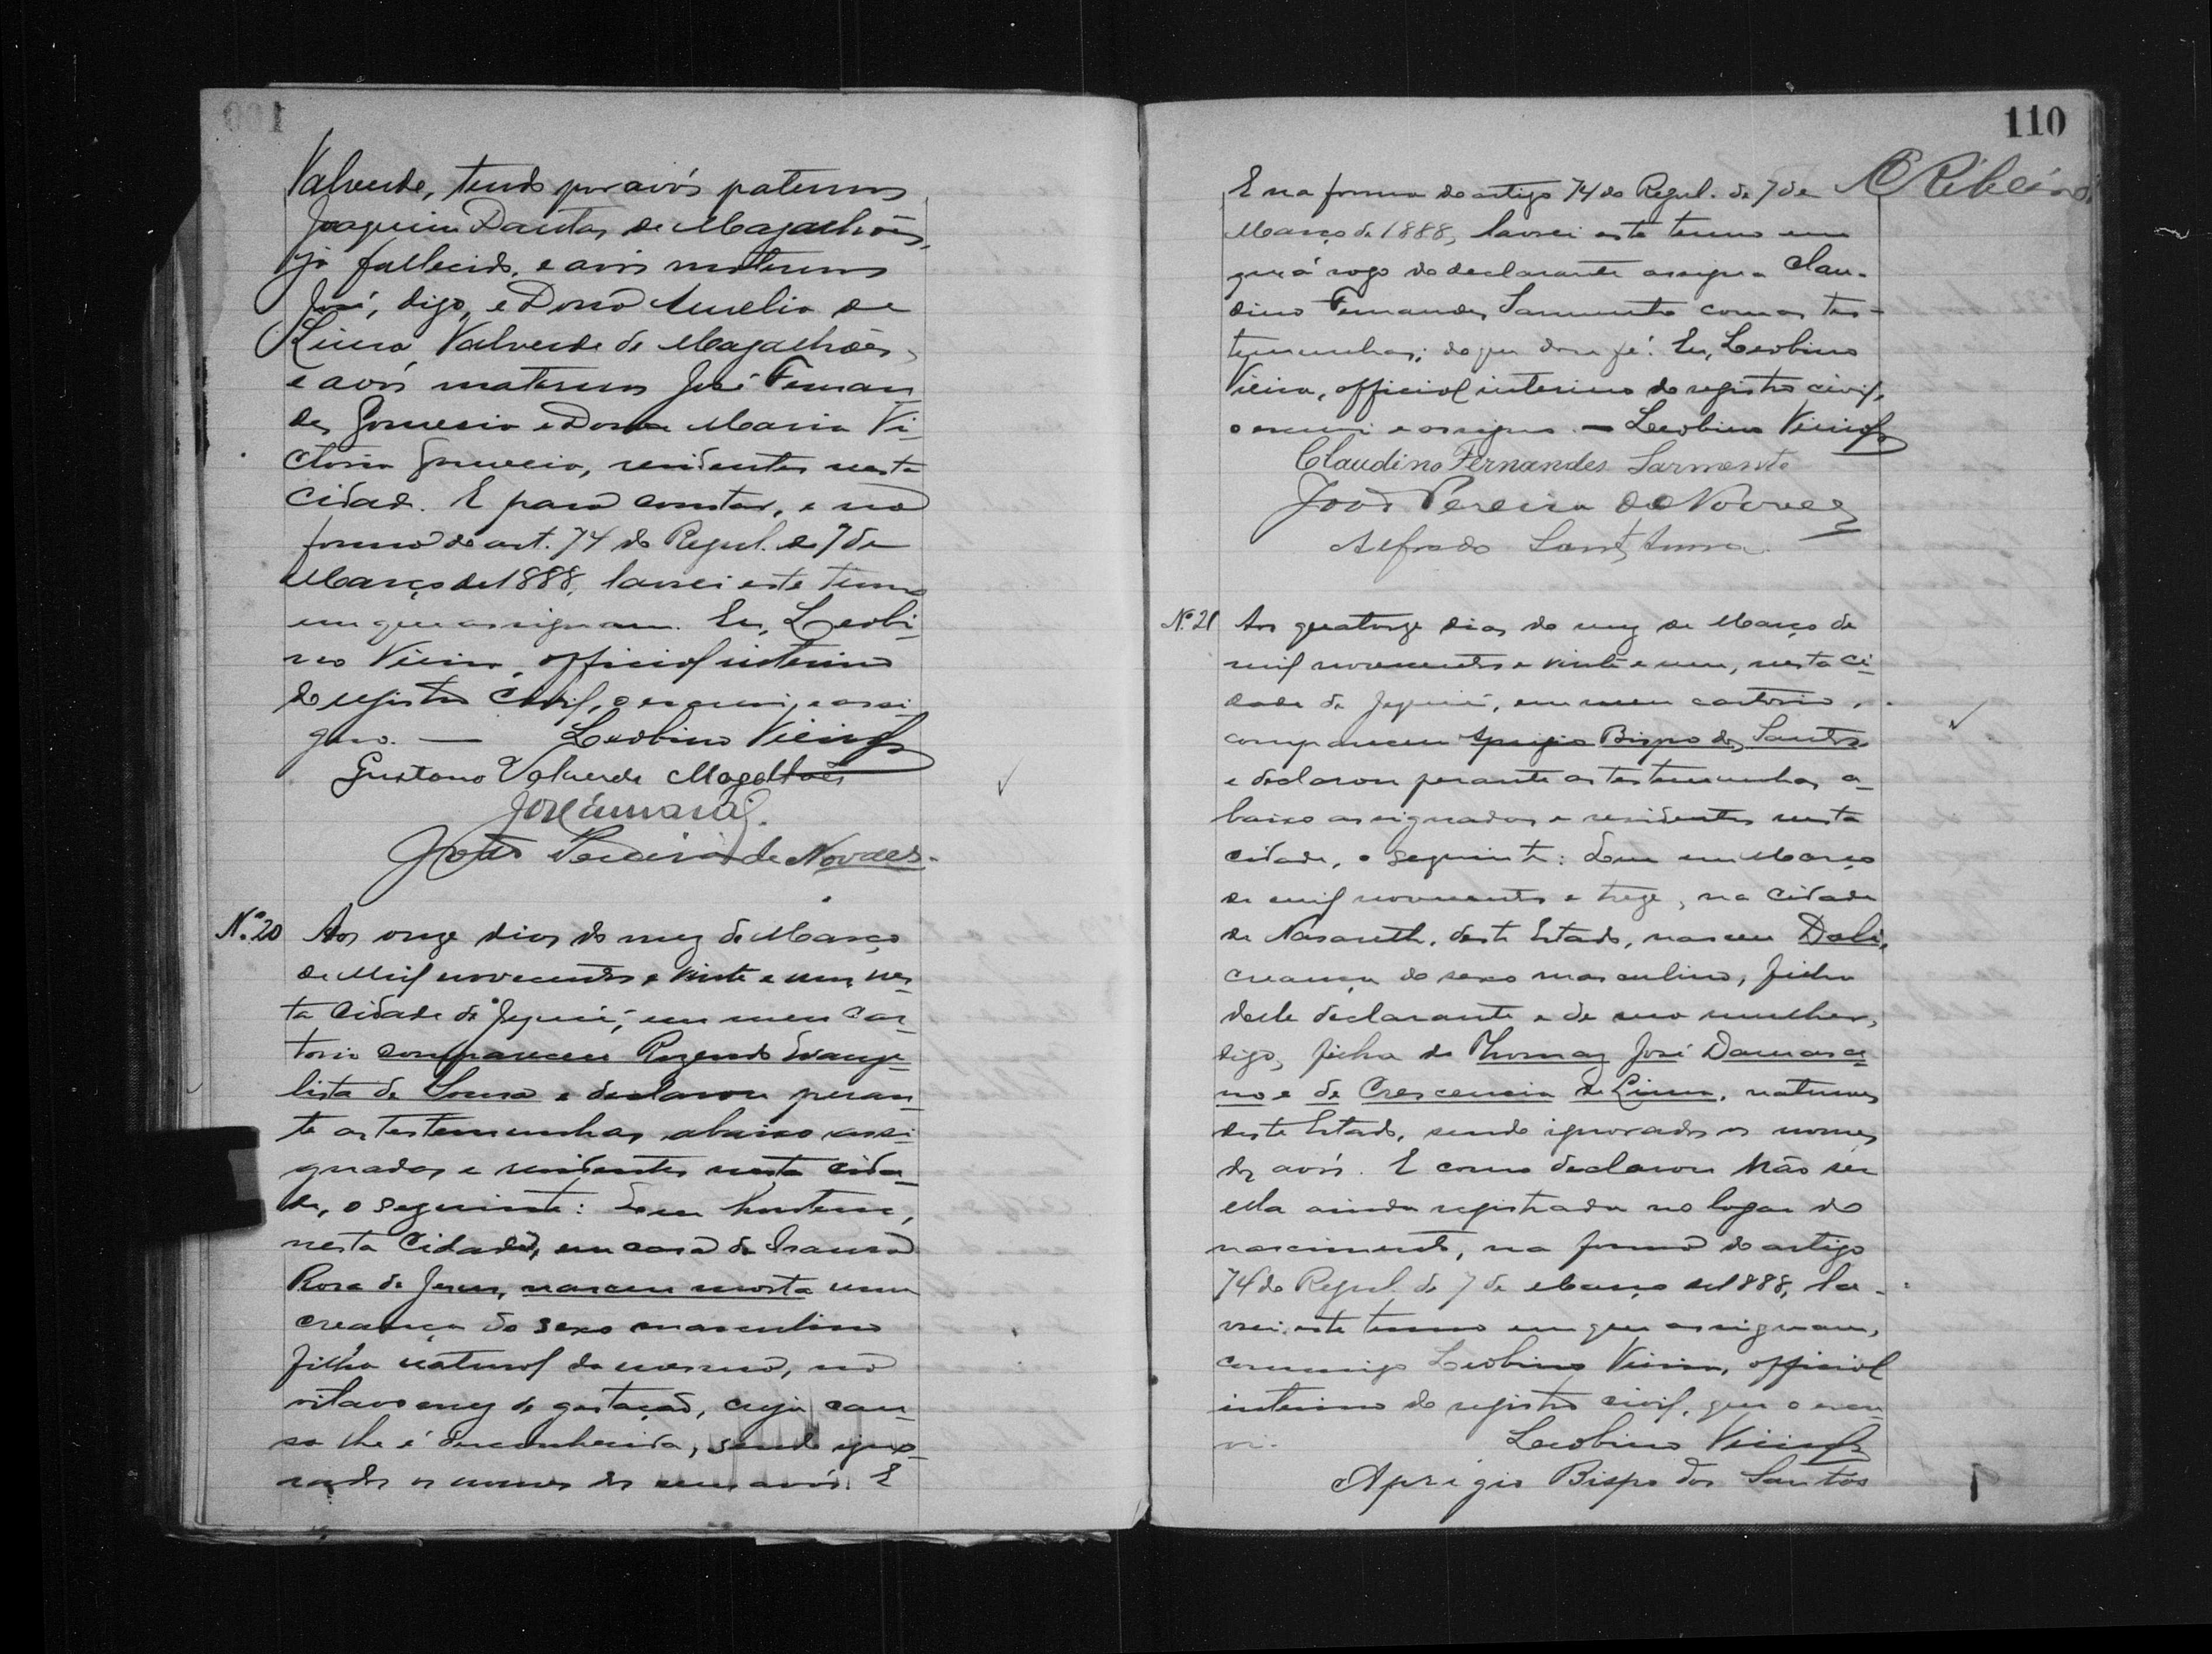 Valverde, tendo por avós paternos
Joaquim Dantas de Magalhães,
já fallecido, e avós maternos
José, digo, e Dona Aurelia de
Lima Valverde de Magalhães,
e avós maternos José Fernan-
des e Dona Maria Vi-
ctoria, residentes nesta
cidade. E para constar, e na
forma do art. 74 do Regul. de 7 de
Março de 1888, lavrei este termo
em que assignam. Eu, Leobi-
no Vieira, official interino
do registro civil, o escrevi, e assi-
gno. — Leobino Vieira
Gustavo Valverde Magalhães
José Amaral.
João Pereira de Novaes.
Nº 20 Aos onze dias do mez de Março
de mil novecentos e vinte e um, nes-
ta cidade de Jequié, em meu car-
torio compareceu Rozendo Evange-
lista de Souza e declarou peran-
te as testemunhas abaixo assi-
gnadas e residentes nesta cida-
de, o seguinte: Que hontem,
nesta cidade, em casa de
Rosa de Jesus, nasceu morta uma
creança do sexo masculino
filha natural da mesma, no
oitavo mez de gestação, cuja cau-
sa lhe é desconhecida, sendo igno-
rados os nomes dos seus avós. E
110
E na forma do artigo 74 do Regul. de 7 de
A Ribeiro
Março de 1888, lavrei este termo em
que á rogo do declarante assigna Clau-
dino Fernandes Sarmento com as tes-
temunhas; do que dou fé. Eu, Leobino
Vieira, official interino do registro civil,
o escrevi e assigno. — Leobino Vieira
Claudino Fernandes Sarmento
João Pereira de Novaes
Alfredo Sant'Anna
Nº 21 Aos quatorze dias do mez de Março de
mil novecentos e vinte e um, nesta ci-
dade de Jequié, em meu cartorio,
compareceu Aprigio Bispo dos Santos
e declarou perante as testemunhas a-
baixo assignadas e residentes nesta
cidade, o seguinte: Que em Março
de mil novecentos e treze, na cidade
de Nasareth, deste Estado, nasceu
creança do sexo masculino, filha
delle declarante e de sua mulher,
digo, filha de Thomaz José Damasce-
no e de Crescencia de Lima, naturaes
deste Estado, sendo ignorados os nomes
dos avós. E como declarou não ser
ella ainda registrada no logar do
nascimento, na forma do artigo
74 do Regul. de 7 de Março de 1888, la-
vrei este termo em que assignam,
commigo Leobino Vieira, official
interino do registro civil, que o escre-
vi. Leobino Vieira
Aprigio Bispo dos Santos